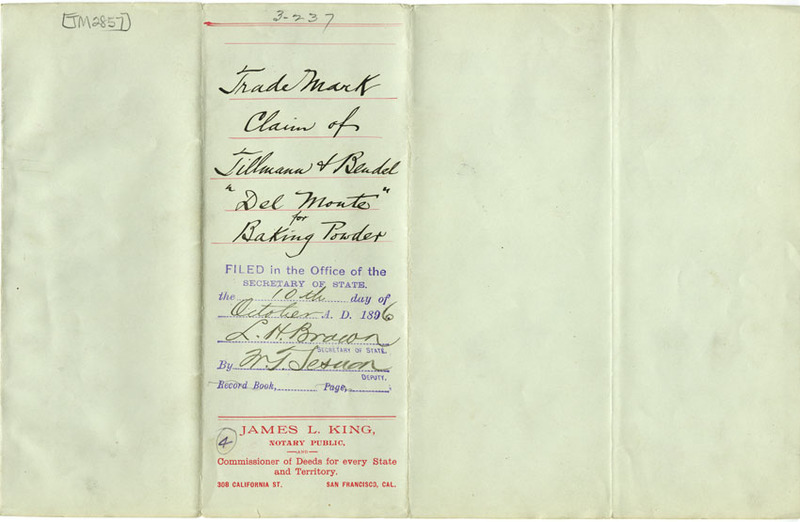 [TM2857]
3-237
Trade Mark
Claim of
Tillmann & Bendel
"Del Monte"
for
Baking Powder
FILED in the Office of the
SECRETARY OF STATE.
the 10th day of
October A. D. 1896
L. H. Brown
SECRETARY OF STATE.
By W. T. Sesnon
DEPUTY.
Record Book, Page,
4
JAMES L. KING,
NOTARY PUBLIC,
—AND—
Commissioner of Deeds for every State
and Territory.
308 CALIFORNIA ST. SAN FRANCISCO, CAL.